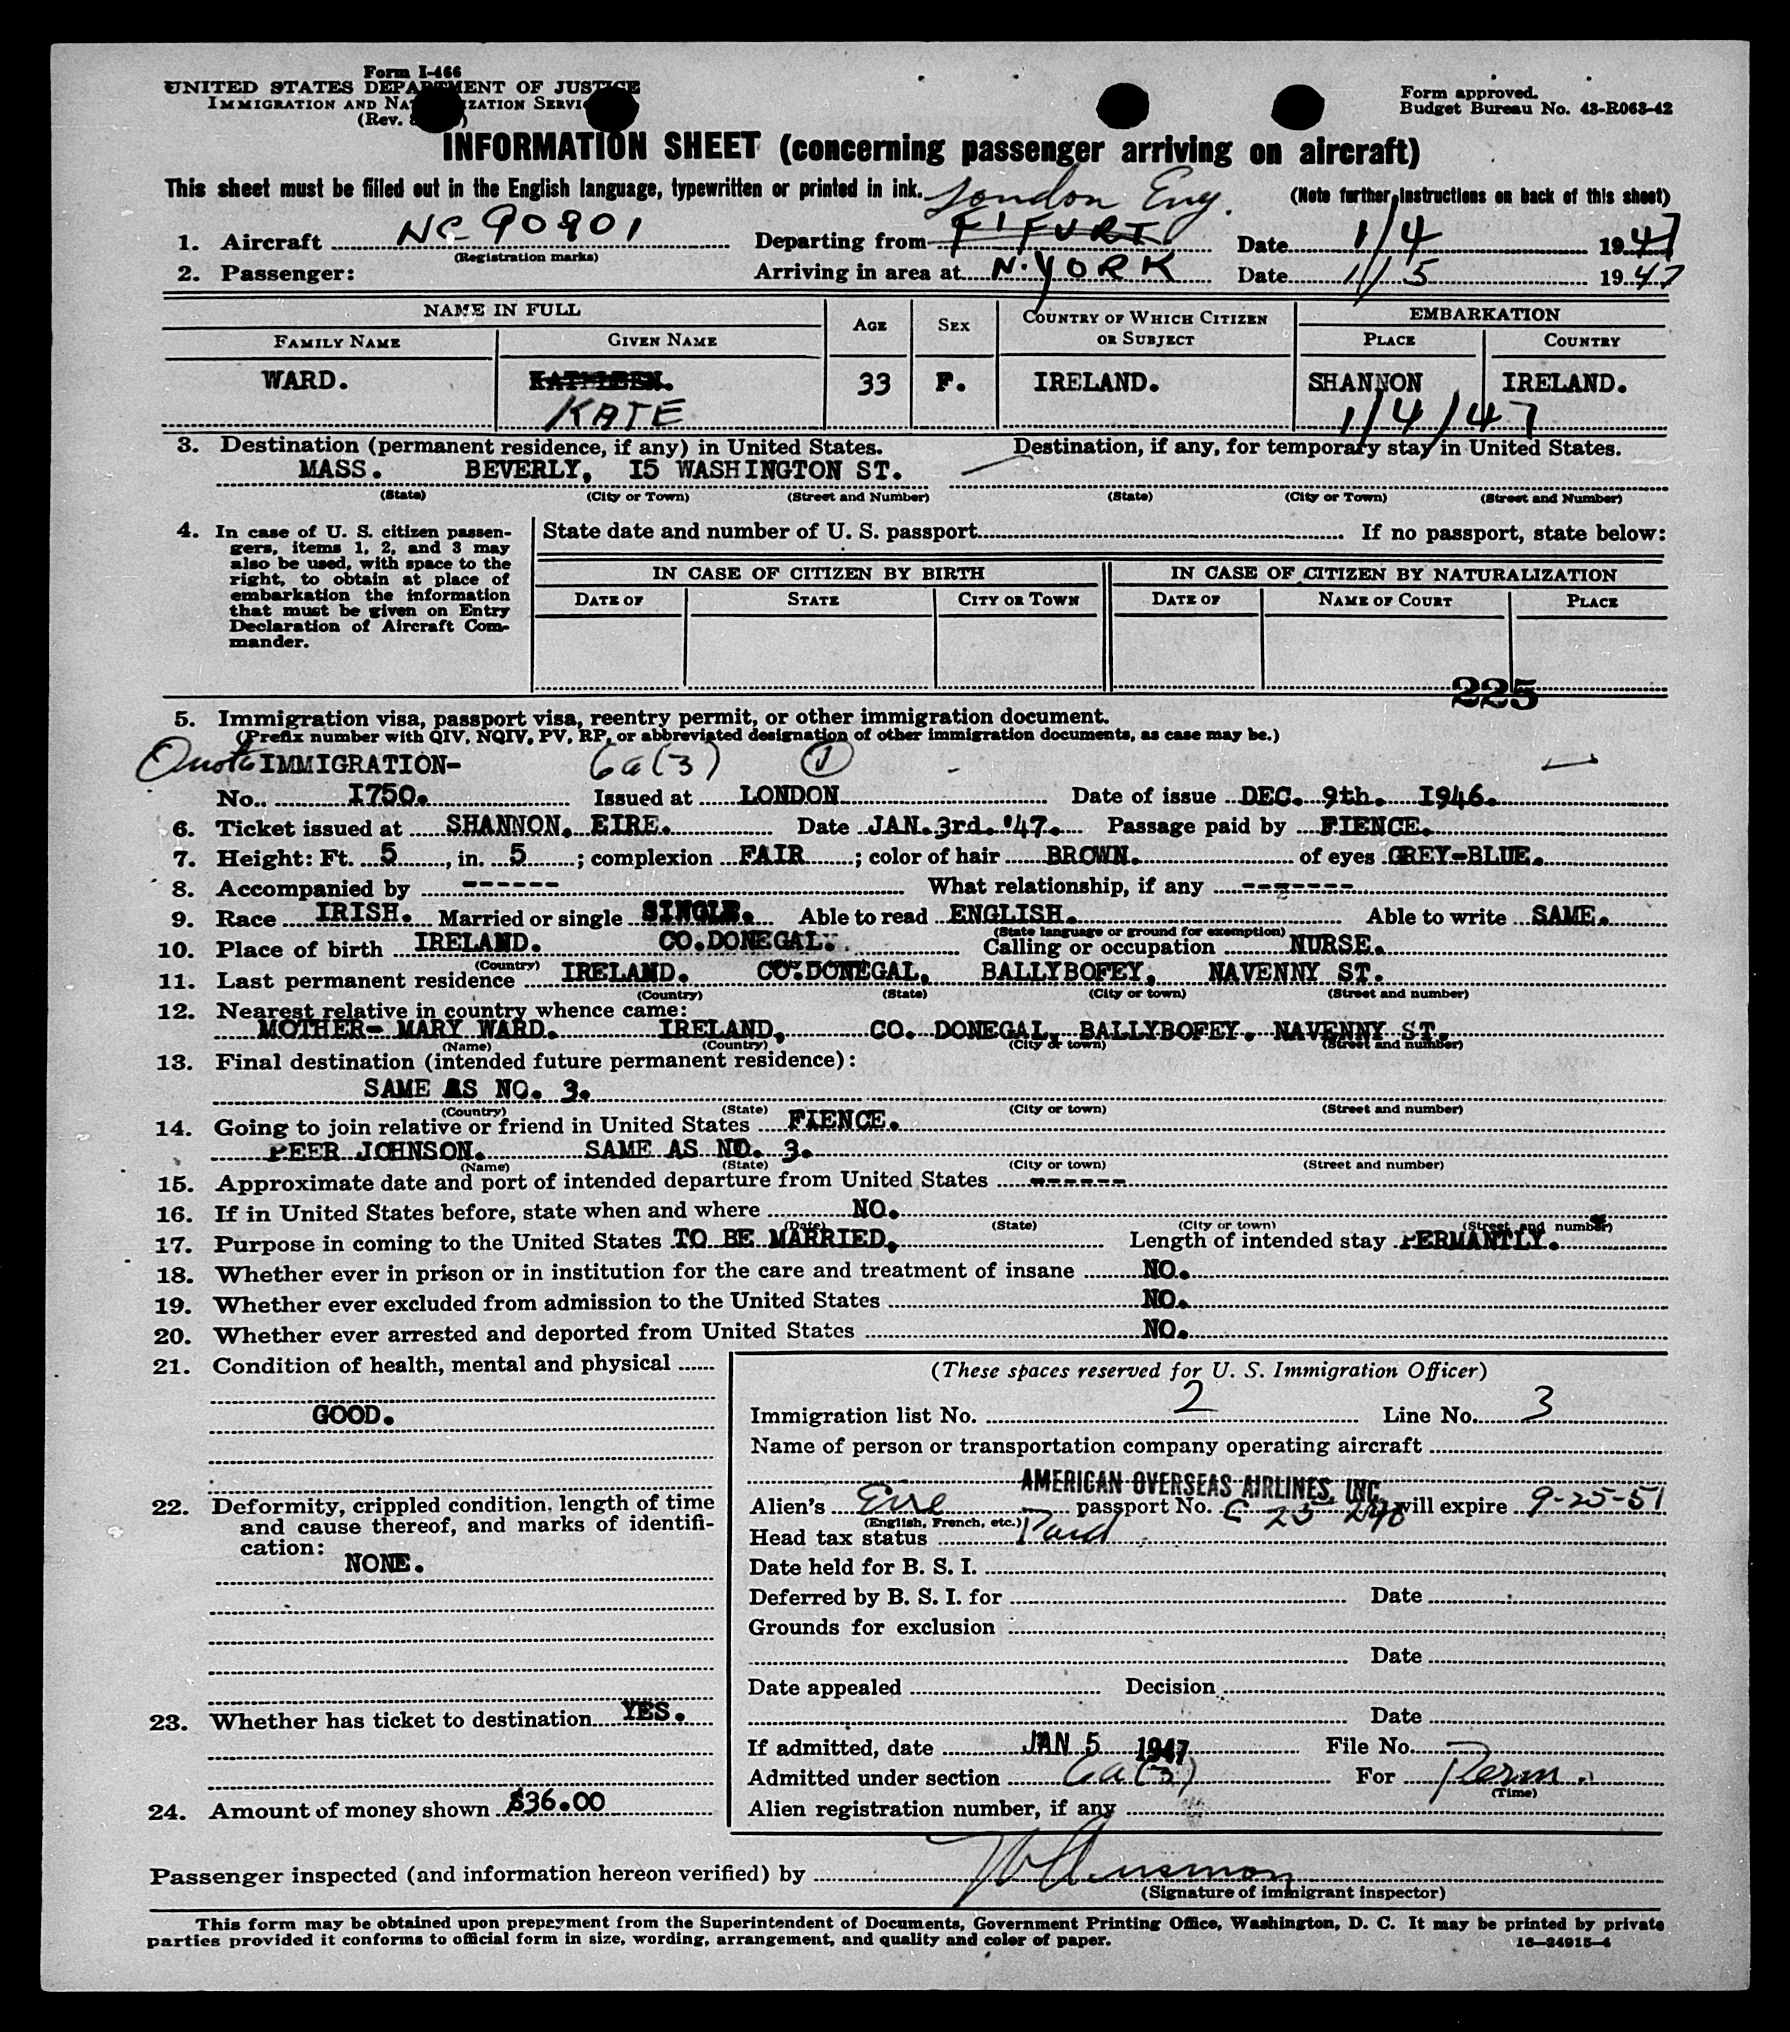 Form I-466
UNITED STATES DEPARTMENT OF JUSTICE
IMMIGRATION AND NATURALIZATION SERVICE
(Rev.
Form approved.
Budget Bureau No. 43-R063-42
INFORMATION SHEET (concerning passenger arriving on aircraft)
This sheet must be filled out in the English language, typewritten or printed in ink. London Eng. (Note further instructions on back of this sheet)
1. Aircraft NC 90901 Departing from F'FURT Date 1/4 1947
(Registration marks)
2. Passenger: Arriving in area at N.YORK Date 1/5 1947
NAME IN FULL AGE SEX COUNTRY OF WHICH CITIZEN OR SUBJECT EMBARKATION
FAMILY NAME GIVEN NAME PLACE COUNTRY
WARD. KATHLEEN. 33 F. IRELAND. SHANNON IRELAND.
KATE 1/4/47
3. Destination (permanent residence, if any) in United States. Destination, if any, for temporary stay in United States.
MASS. BEVERLY, I5 WASHINGTON ST.
(State) (City or Town) (Street and Number) (State) (City or Town) (Street and Number)
4. In case of U. S. citizen passen-
gers, items 1, 2, and 3 may
also be used, with space to the
right, to obtain at place of
embarkation the information
that must be given on Entry
Declaration of Aircraft Com-
mander.
State date and number of U. S. passport If no passport, state below:
IN CASE OF CITIZEN BY BIRTH IN CASE OF CITIZEN BY NATURALIZATION
DATE OF STATE CITY OR TOWN DATE OF NAME OF COURT PLACE
225
5. Immigration visa, passport visa, reentry permit, or other immigration document.
(Prefix number with QIV, NQIV, PV, RP, or abbreviated designation of other immigration documents, as case may be.)
Quota IMMIGRATION- 6a(3) 1
No. I750. Issued at LONDON Date of issue DEC. 9th. I946.
6. Ticket issued at SHANNON. EIRE. Date JAN. 3rd. '47. Passage paid by FIENCE.
7. Height: Ft. 5, in. 5; complexion FAIR; color of hair BROWN. of eyes GREY-BLUE.
8. Accompanied by ------ What relationship, if any -------
9. Race IRISH. Married or single SINGLE. Able to read ENGLISH. Able to write SAME.
(State language or ground for exemption)
10. Place of birth IRELAND. CO.DONEGAL. Calling or occupation NURSE.
(Country)
11. Last permanent residence IRELAND. CO.DONEGAL. BALLYBOFEY. NAVENNY ST.
(Country) (State) (City or town) (Street and number)
12. Nearest relative in country whence came:
MOTHER- MARY WARD. IRELAND, CO. DONEGAL, BALLYBOFEY. NAVENNY ST.
(Name) (Country) (City or town) (Street and number)
13. Final destination (intended future permanent residence):
SAME AS NO. 3.
(Country) (State) (City or town) (Street and number)
14. Going to join relative or friend in United States FIENCE.
PEER JOHNSON. SAME AS NO. 3.
(Name) (State) (City or town) (Street and number)
15. Approximate date and port of intended departure from United States ------
16. If in United States before, state when and where NO.
(Date) (State) (City or town) (Street and number)
17. Purpose in coming to the United States TO BE MARRIED, Length of intended stay PERMANTLY.
18. Whether ever in prison or in institution for the care and treatment of insane NO.
19. Whether ever excluded from admission to the United States NO.
20. Whether ever arrested and deported from United States NO.
21. Condition of health, mental and physical
GOOD.
22. Deformity, crippled condition, length of time
and cause thereof, and marks of identifi-
cation:
NONE.
23. Whether has ticket to destination YES.
24. Amount of money shown $36.00
(These spaces reserved for U. S. Immigration Officer)
Immigration list No. 2 Line No. 3
Name of person or transportation company operating aircraft
AMERICAN OVERSEAS AIRLINES, INC.
Alien's Eire passport No. C 25 240 will expire 9-25-51
(English, French, etc.)
Head tax status Paid
Date held for B. S. I.
Deferred by B. S. I. for Date
Grounds for exclusion
Date
Date appealed Decision
Date
If admitted, date JAN 5 1947 File No.
Admitted under section 6a(3) For Perm.
(Time)
Alien registration number, if any
Passenger inspected (and information hereon verified) by
(Signature of immigrant inspector)
This form may be obtained upon prepayment from the Superintendent of Documents, Government Printing Office, Washington, D. C. It may be printed by private
parties provided it conforms to official form in size, wording, arrangement, and quality and color of paper.
16-24915-4